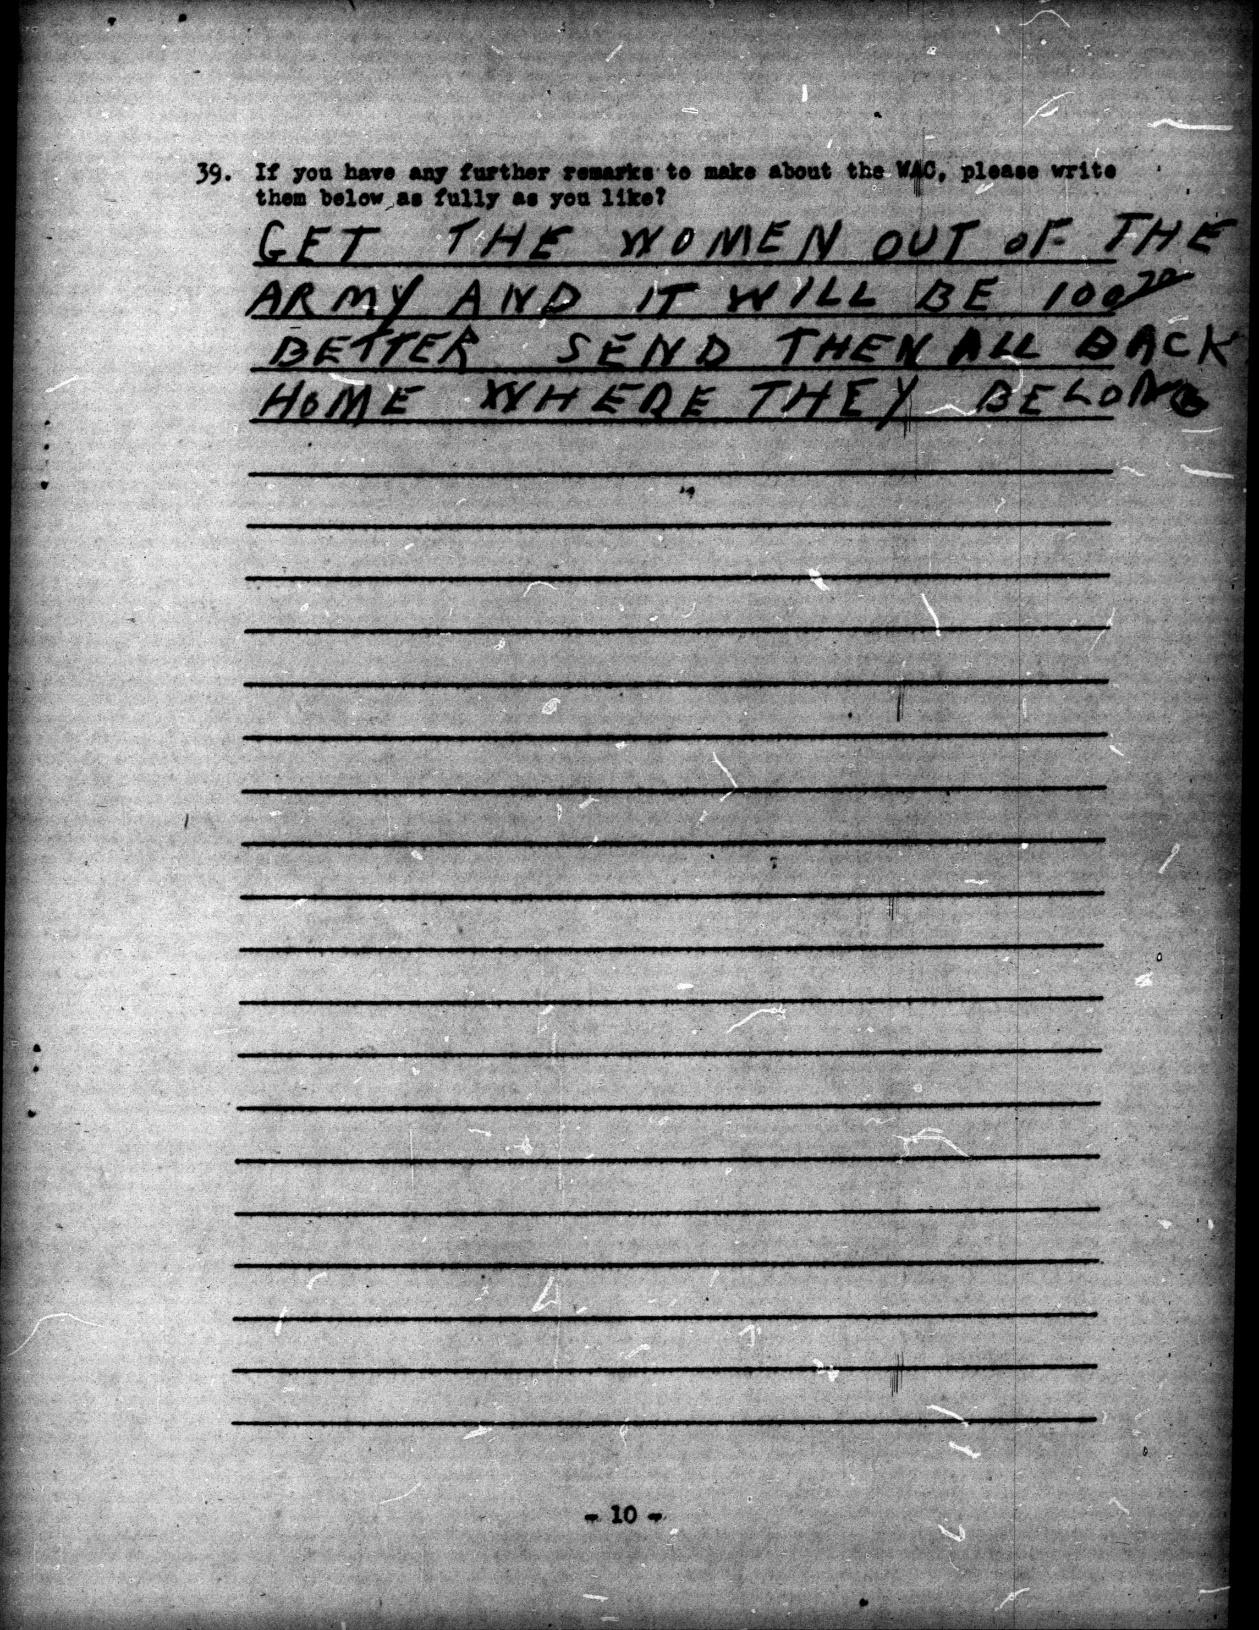 39. If you have any further remarks to make about the WAC, please write
them below as fully as you like?
GET THE WOMEN OUT OF THE
ARMY AND IT WILL BE 100%
BETTER SEND THEN ALL BACK
HOME WHERE THEY BELONG
- 10 -